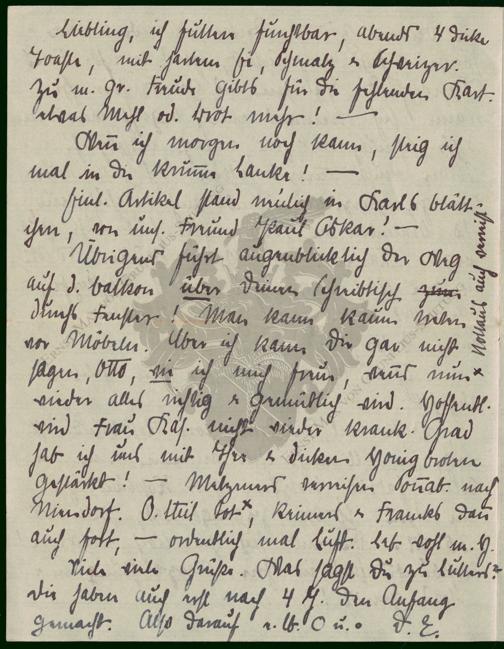 Liebling, ich futtere furchtbar, abends 4 dicke
Toaste, mit hartem Ei, Schmalz & Schweizer.
Zu m. gr. Freude gibts für die fehlenden Kart.
etwas Mehl od. Brot mehr! —
Wenn ich morgen noch kann, steig ich
mal in die Krumme Lanke! —
Eint. Artikel stand neulich in Karls Blätt-
chen, von uns. Freund Paul Oskar! —
Übrigens führt augenblicklich der Weg
auf d. Balkon über Deinen Schreibtisch zum
durchs Fenster! Man kann kaum treten
vor Möbeln. Aber ich kann Dir gar nicht
sagen, Otto, wie ich mich freue, wenn nun
wieder alles richtig & gemütlich wird. Hoffentl.
wird Frau Kaj. nicht wieder krank. Grad
hab ich uns mit Thee & dicken Honigbroten
gestärkt! — Metzners verreisen Sonnab. nach
Niendorf. O. still Tot x, Reimers & Francks dann
auch fort, — ordentlich mal Luft. Leb wohl m. H.
Viele viele Grüße. Was sagst Du zu Lutters?
Die haben auch erst nach 4 J. den Anfang
gemacht. Also darauf e. lb. O u. o D. E.
x Nollaus auch verreist